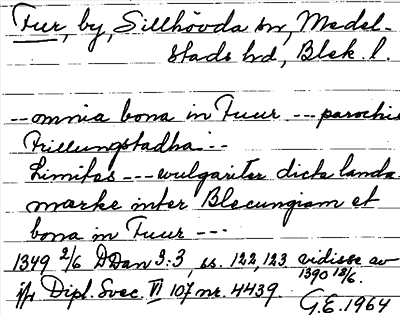 Fur, by, Sillhövda sn, Medel-
stads hd, Blek. l.
-- omnia bona in Fuur --- parochie
Frillungstadha --
Limites --- wulgariter dicta landa-
mærke inter Blecungiam et
bona in Fuur ---
1349 2/6 DDan 3:3, ss. 122, 123 vidisse av
1390 12/6.
jfr Dipl. Svec. VI 107 nr. 4439.
G.E. 1964